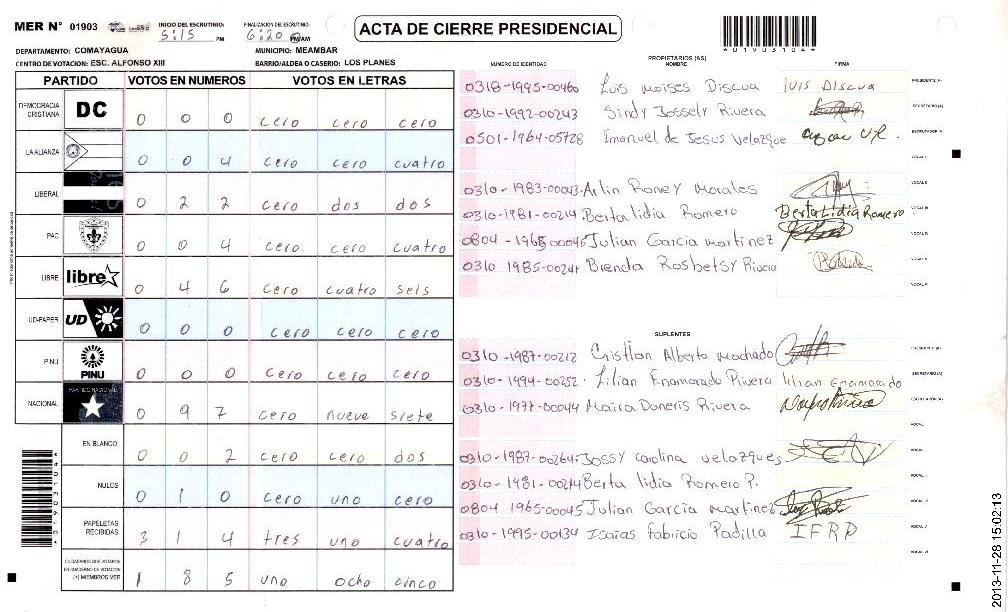 MER N° 01903 INICIO DEL ESCRUTINIO: 5:15 PM FINALIZACION DEL ESCRUTINIO: 6:20 PM/AM
ACTA DE CIERRE PRESIDENCIAL
*01903104*
DEPARTAMENTO: COMAYAGUA MUNICIPIO: MEAMBAR
CENTRO DE VOTACION: ESC. ALFONSO XIII BARRIO/ALDEA O CASERIO: LOS PLANES
PARTIDO VOTOS EN NUMEROS VOTOS EN LETRAS
DEMOCRACIA CRISTIANA DC 0 0 0 cero cero cero
LA ALIANZA 0 0 4 cero cero cuatro
LIBERAL 0 2 2 cero dos dos
PAC 0 0 4 cero cero cuatro
LIBRE libre 0 4 6 cero cuatro seis
UD-FAPER UD 0 0 0 cero cero cero
PINU PINU 0 0 0 cero cero cero
NACIONAL PARTIDO NACIONAL 0 9 7 cero nueve siete
EN BLANCO 0 0 2 cero cero dos
NULOS 0 1 0 cero uno cero
PAPELETAS RECIBIDAS 3 1 4 tres uno cuatro
CIUDADANOS QUE VOTARON EN CUADERNO DE VOTACION (+) MIEMBROS MER 1 8 5 uno ocho cinco
PROPIETARIOS (AS)
NUMERO DE IDENTIDAD NOMBRE FIRMA
0318-1995-00460 Luis Moises Discua Luis Discua PRESIDENTE (A)
0310-1992-00243 Sindy Jossely Rivera SECRETARIO (A)
0501-1964-05728 Emanuel de Jesus Velazque ESCRUTADOR (A)
VOCAL I
0310-1983-00043 Arlin Roney Morales VOCAL II
0310-1981-00214 Berta lidia Romero Berta Lidia Romero VOCAL III
0804-1965-00045 Julian Garcia martinez VOCAL IV
0310 1985-00241 Brenda Rosbetsy Rivera VOCAL V
VOCAL VI
SUPLENTES
0310-1987-00212 Cristian Alberto Machado PRESIDENTE (A)
0310-1994-00252 Lilian Enamorado Rivera Lilian Enamorado SECRETARIO (A)
0310-1977-00044 Maira Doneris Rivera ESCRUTADOR (A)
VOCAL I
0310-1987-00264 Jossy carolina velazques VOCAL II
0310-1981-00214 Berta lidia Romero P. VOCAL III
0804 1965-00045 Julian Garcia martinez VOCAL IV
0310-1995-00134 Isaias Fabricio Padilla IFRP VOCAL V
VOCAL VI
*01903104*
2013-11-28 15:02:13